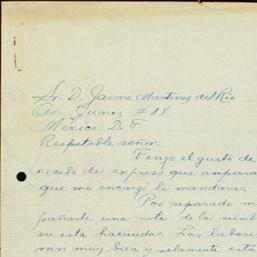 Sr. D. Jaime Martinez del Rio
Av. Juarez # 88
México D. F.
Respetable señor:
Tengo el gusto de
recibo des express que ampara
que me encargó le mandara.
Por separado m
pañarle una nota de la siemb
en esta hacienda. Las labores
van muy bien y solamente está